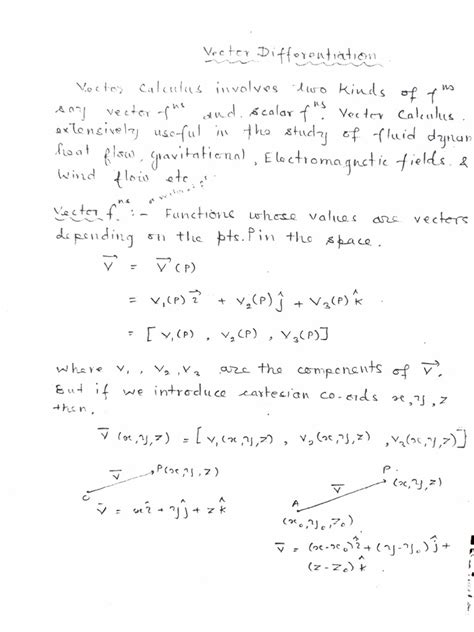 Vector Differentiation
Vector Calculus involves two kinds of fⁿˢ
say vector fⁿˢ and scalar fⁿˢ. Vector Calculus
extensively useful in the study of fluid dynam
heat flow, gravitational, Electromagnetic fields &
wind flow etc.
Vector fⁿˢ :- Functions whose values are vectors
depending on the pts. P in the space.
v⃗ = v⃗(P)
= v₁(P) î + v₂(P) ĵ + v₃(P) k̂
= [v₁(P), v₂(P), v₃(P)]
where v₁, v₂, v₃ are the components of v⃗.
But if we introduce cartesian co-ords x, y, z
then.
v⃗(x,y,z) = [v₁(x,y,z), v₂(x,y,z), v₂(x,y,z)]
v⃗ P(x,y,z)
O
v⃗ = xî + yĵ + zk̂
P
v⃗ (x,y,z)
A
(x₀,y₀,z₀)
v⃗ = (x-x₀)î + (y-y₀)ĵ +
(z-z₀)k̂